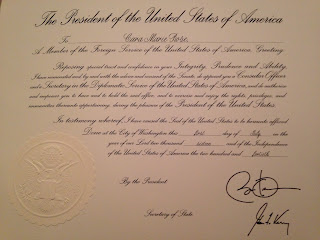 The President of the United States of America
To Cara Marie
A Member of the Foreign Service of the United States of America, Greeting
Reposing special trust and confidence in your Integrity, Prudence and Ability,
I have nominated and by and with the advice and consent of the Senate, do appoint you a Consular Officer
and a Secretary in the Diplomatic Service of the United States of America, and do authorize
and empower you to have and to hold the said office, and to exercise and enjoy the rights privileges and
immunities thereunto appertaining, during the pleasure of the President of the United States.
In testimony whereof, I have caused the Seal of the United States to be hereunto affixed
Done at the City of Washington this day of in the
year of our Lord two thousand and of the Independence
of the United States of America the two hundred and
By the President
Secretary of State